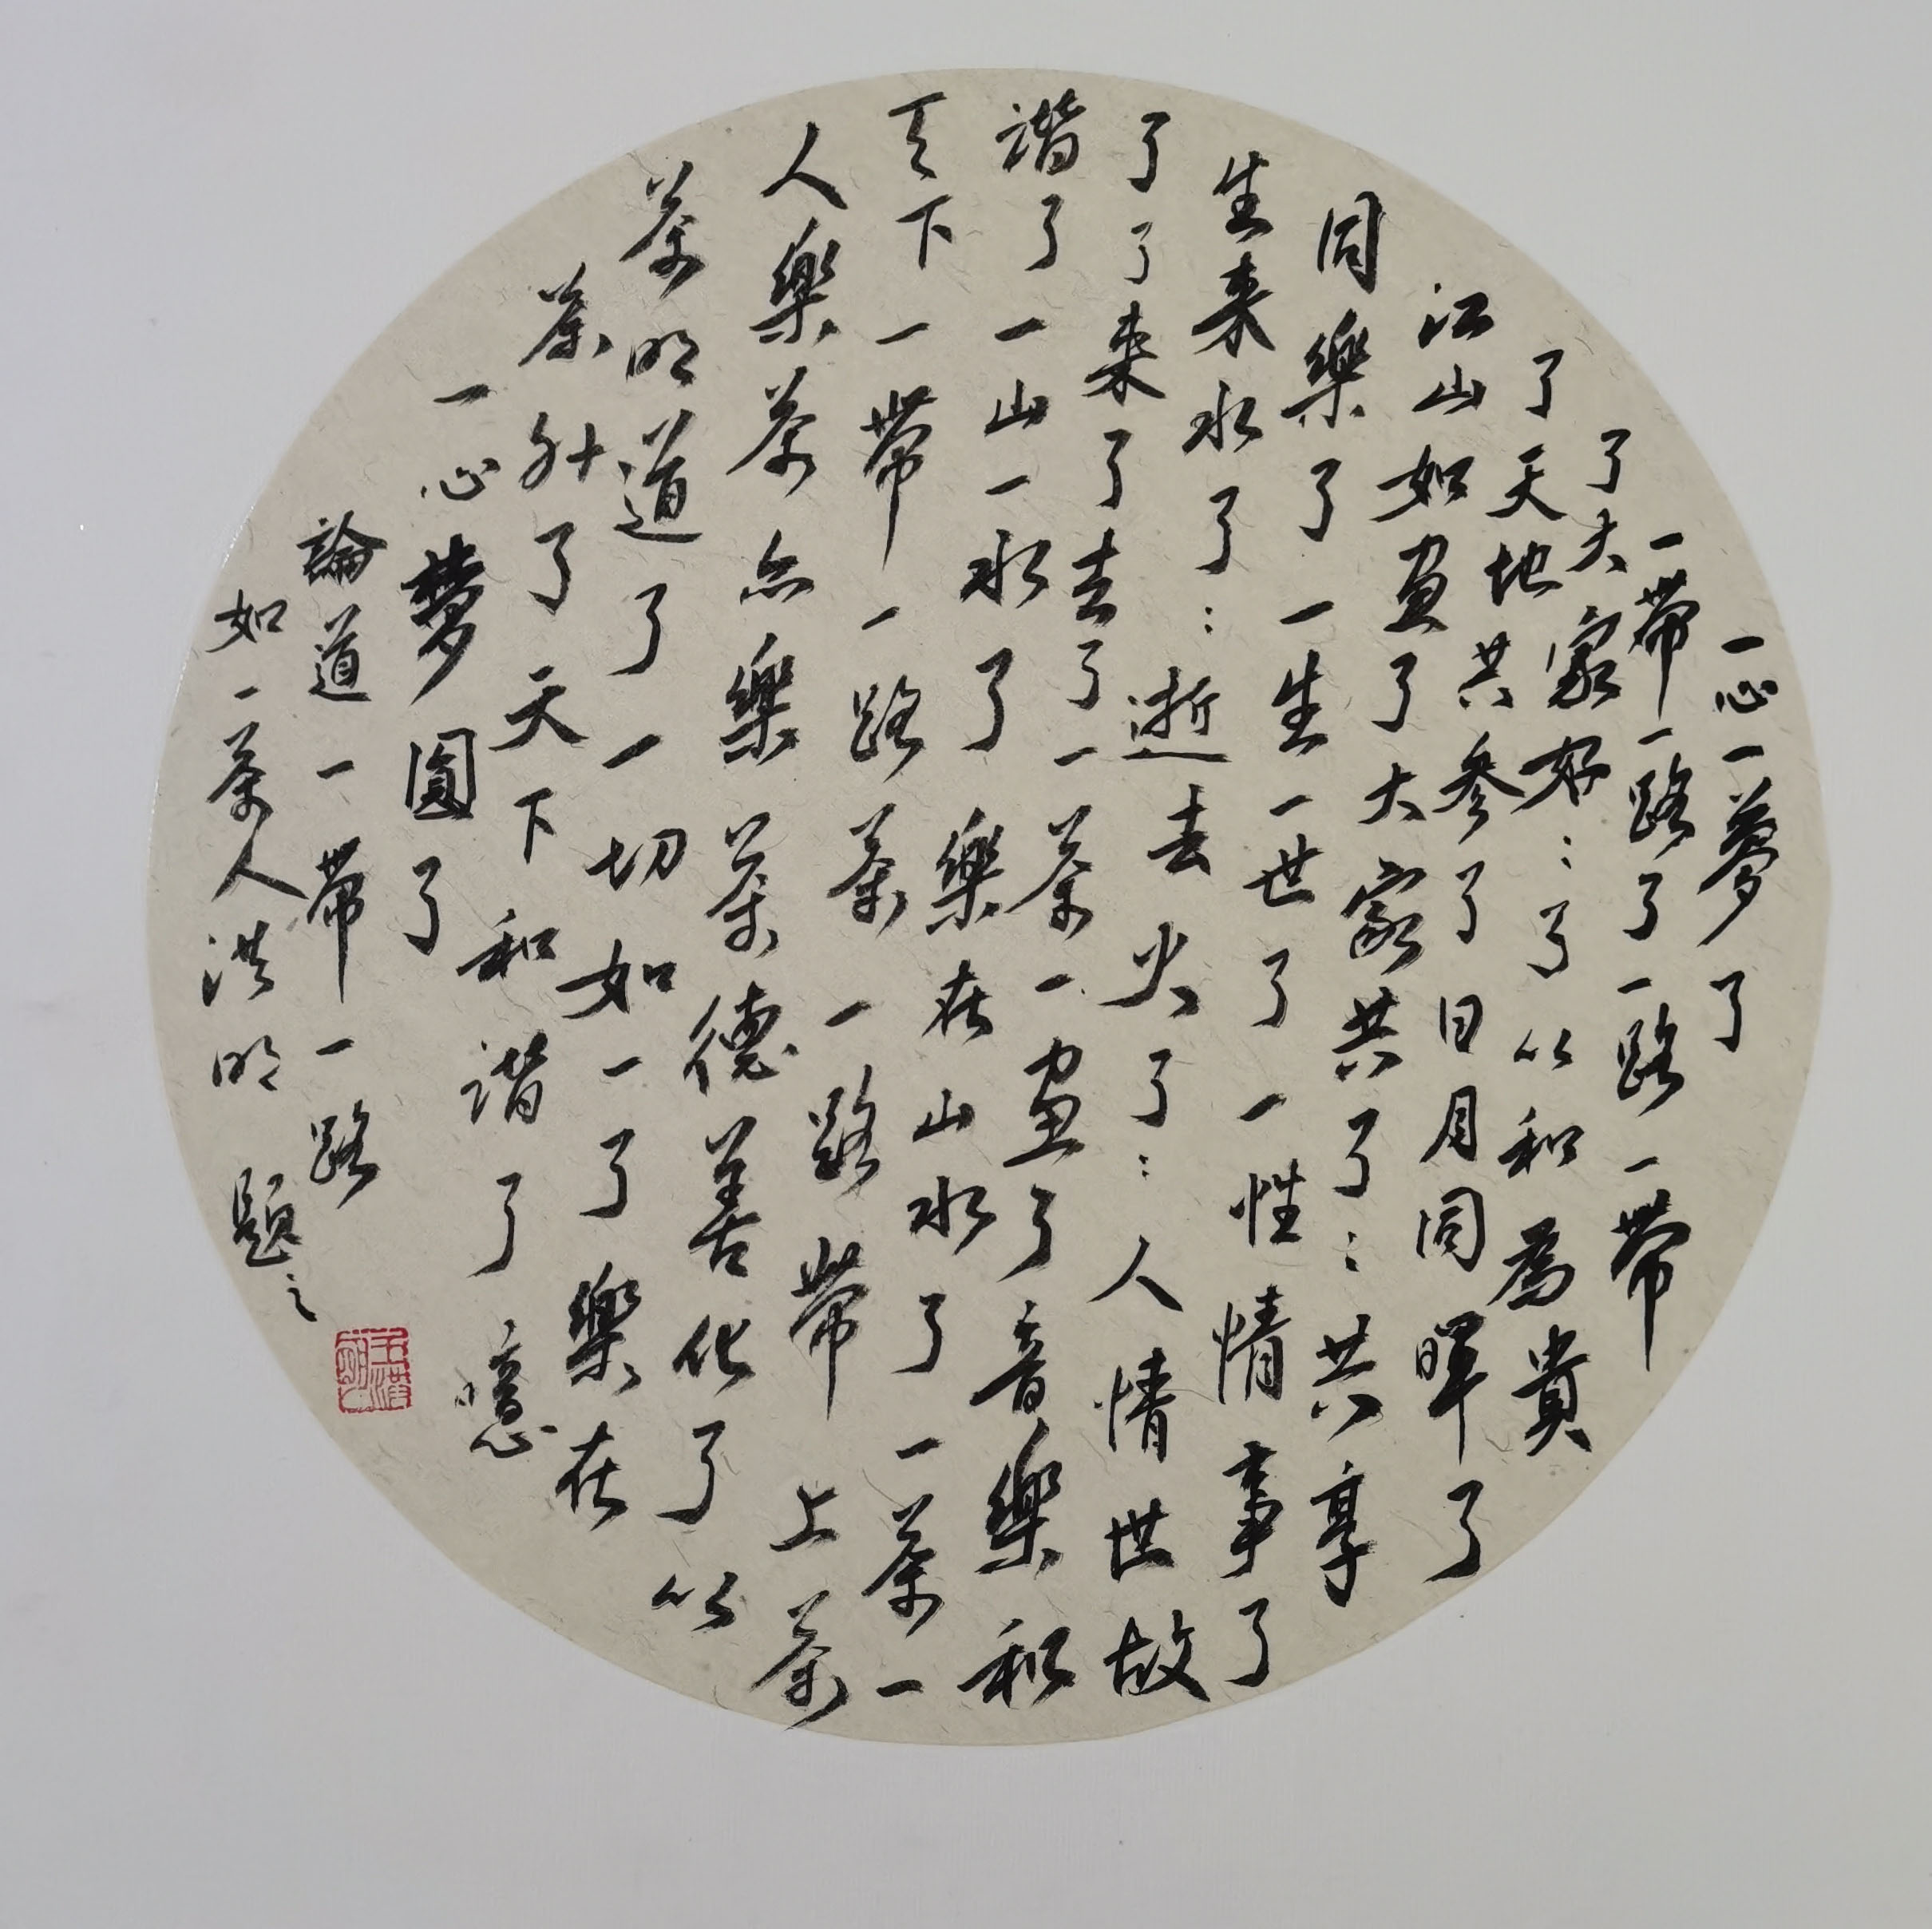 一心一夢了
一帶一路了一路一帶
了大家好:了以和為貴
了天地共参了日月同暉了
江山如画了大家共了:共享
同樂了一生一世了一性情事了
生来水了:逝去火了:人情世故
了了来了去了一茶一画了音樂和
諧了一山一水了樂在山水了一茶一
天下一帶一路茶一路帶上茶
人樂茶亦樂茶德善化了以
茶明道了一切如一了樂在
茶外了天下和諧了噫
一心夢圓了
論道一帶一路
如一茶人洪明題之